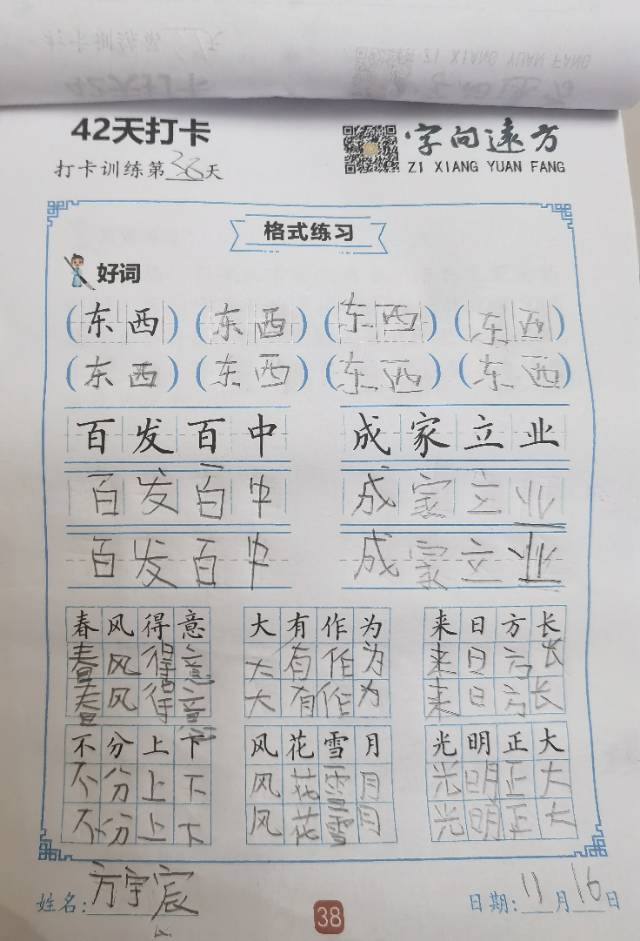 42天打卡
字向远方
打卡训练第38天
ZI XIANG YUAN FANG
格式练习
好词
(东西) (东西) (东西) (东西)
(东西) (东西) (东西) (东西)
百发百中 成家立业
百发百中 成家立业
百发百中 成家立业
春风得意 大有作为 来日方长
春风得意 大有作为 来日方长
春风得意 大有作为 来日方长
不分上下 风花雪月 光明正大
不分上下 风花雪月 光明正大
不分上下 风花雪月 光明正大
姓名:方宇宸 日期:11月16日
38